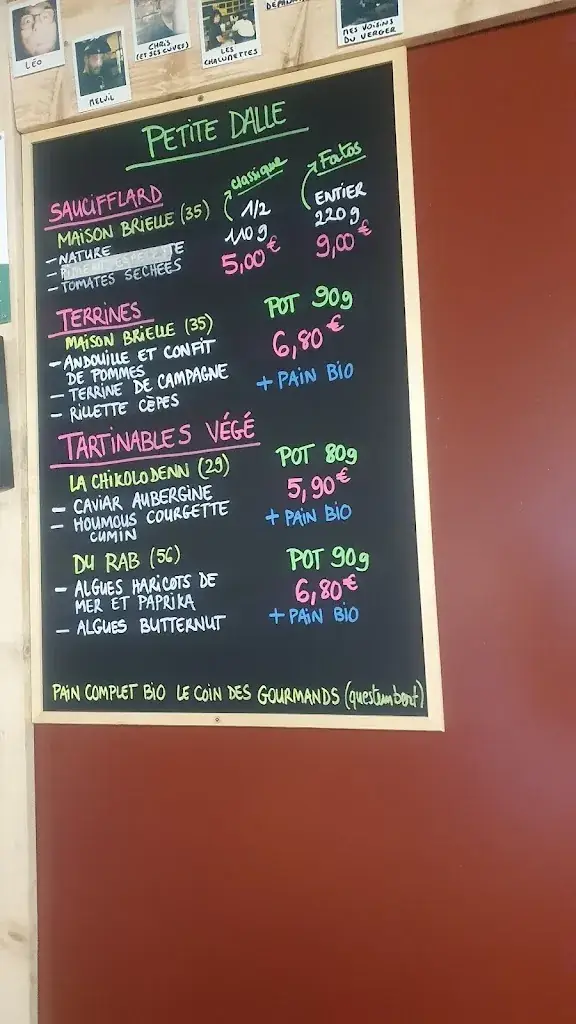 LÉO
MELVIL
CHRIS
(ET SES CUVES)
LES
CHALUMETTES
MES VOISINS
DU VERGER
PETITE DALLE
SAUCIFFLARD
classique
Fatos
MAISON BRIELLE (35)
1/2
110g
5,00€
ENTIER
220g
9,00€
- NATURE
- TOMATES SECHÉES
TERRINES
MAISON BRIELLE (35)
POT 90g
6,80€
+ PAIN BIO
- ANDOUILLE ET CONFIT
DE POMMES
- TERRINE DE CAMPAGNE
- RILLETTE CÈPES
TARTINABLES VÉGÉ
LA CHIKOLODENN (29)
POT 80g
5,90€
+ PAIN BIO
- CAVIAR AUBERGINE
- HOUMOUS COURGETTE
CUMIN
DU RAB (56)
POT 90g
6,80€
+ PAIN BIO
- ALGUES HARICOTS DE
MER ET PAPRIKA
- ALGUES BUTTERNUT
PAIN COMPLET BIO LE COIN DES GOURMANDS (questembert)